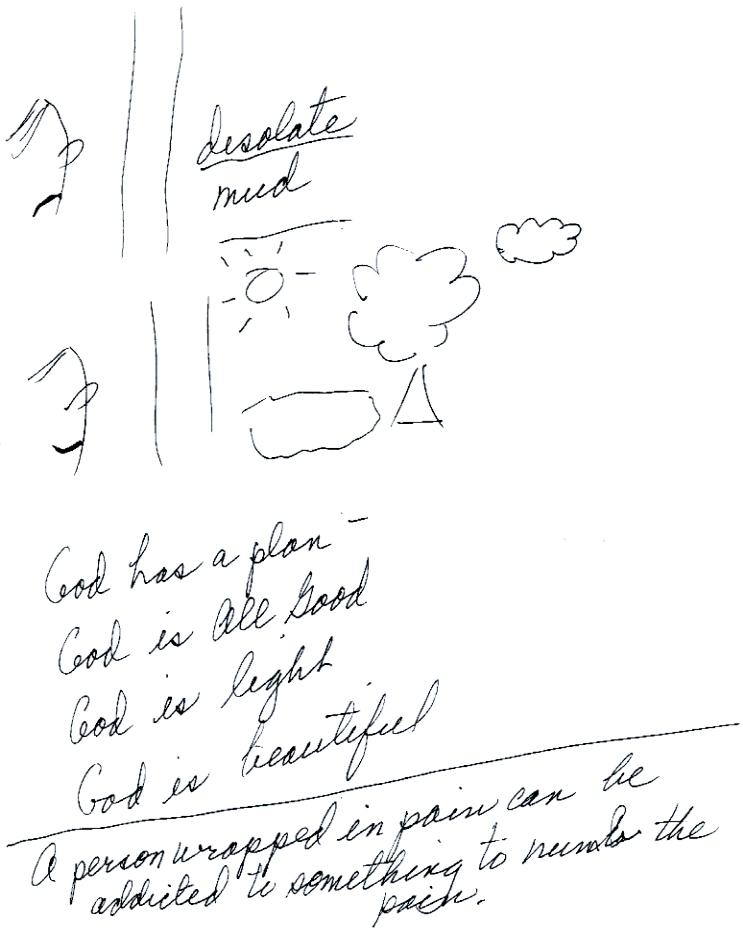 desolate
mud
God has a plan -
God is All Good
God is light
God is beautiful
A person wrapped in pain can be
addicted to something to numb the
pain.